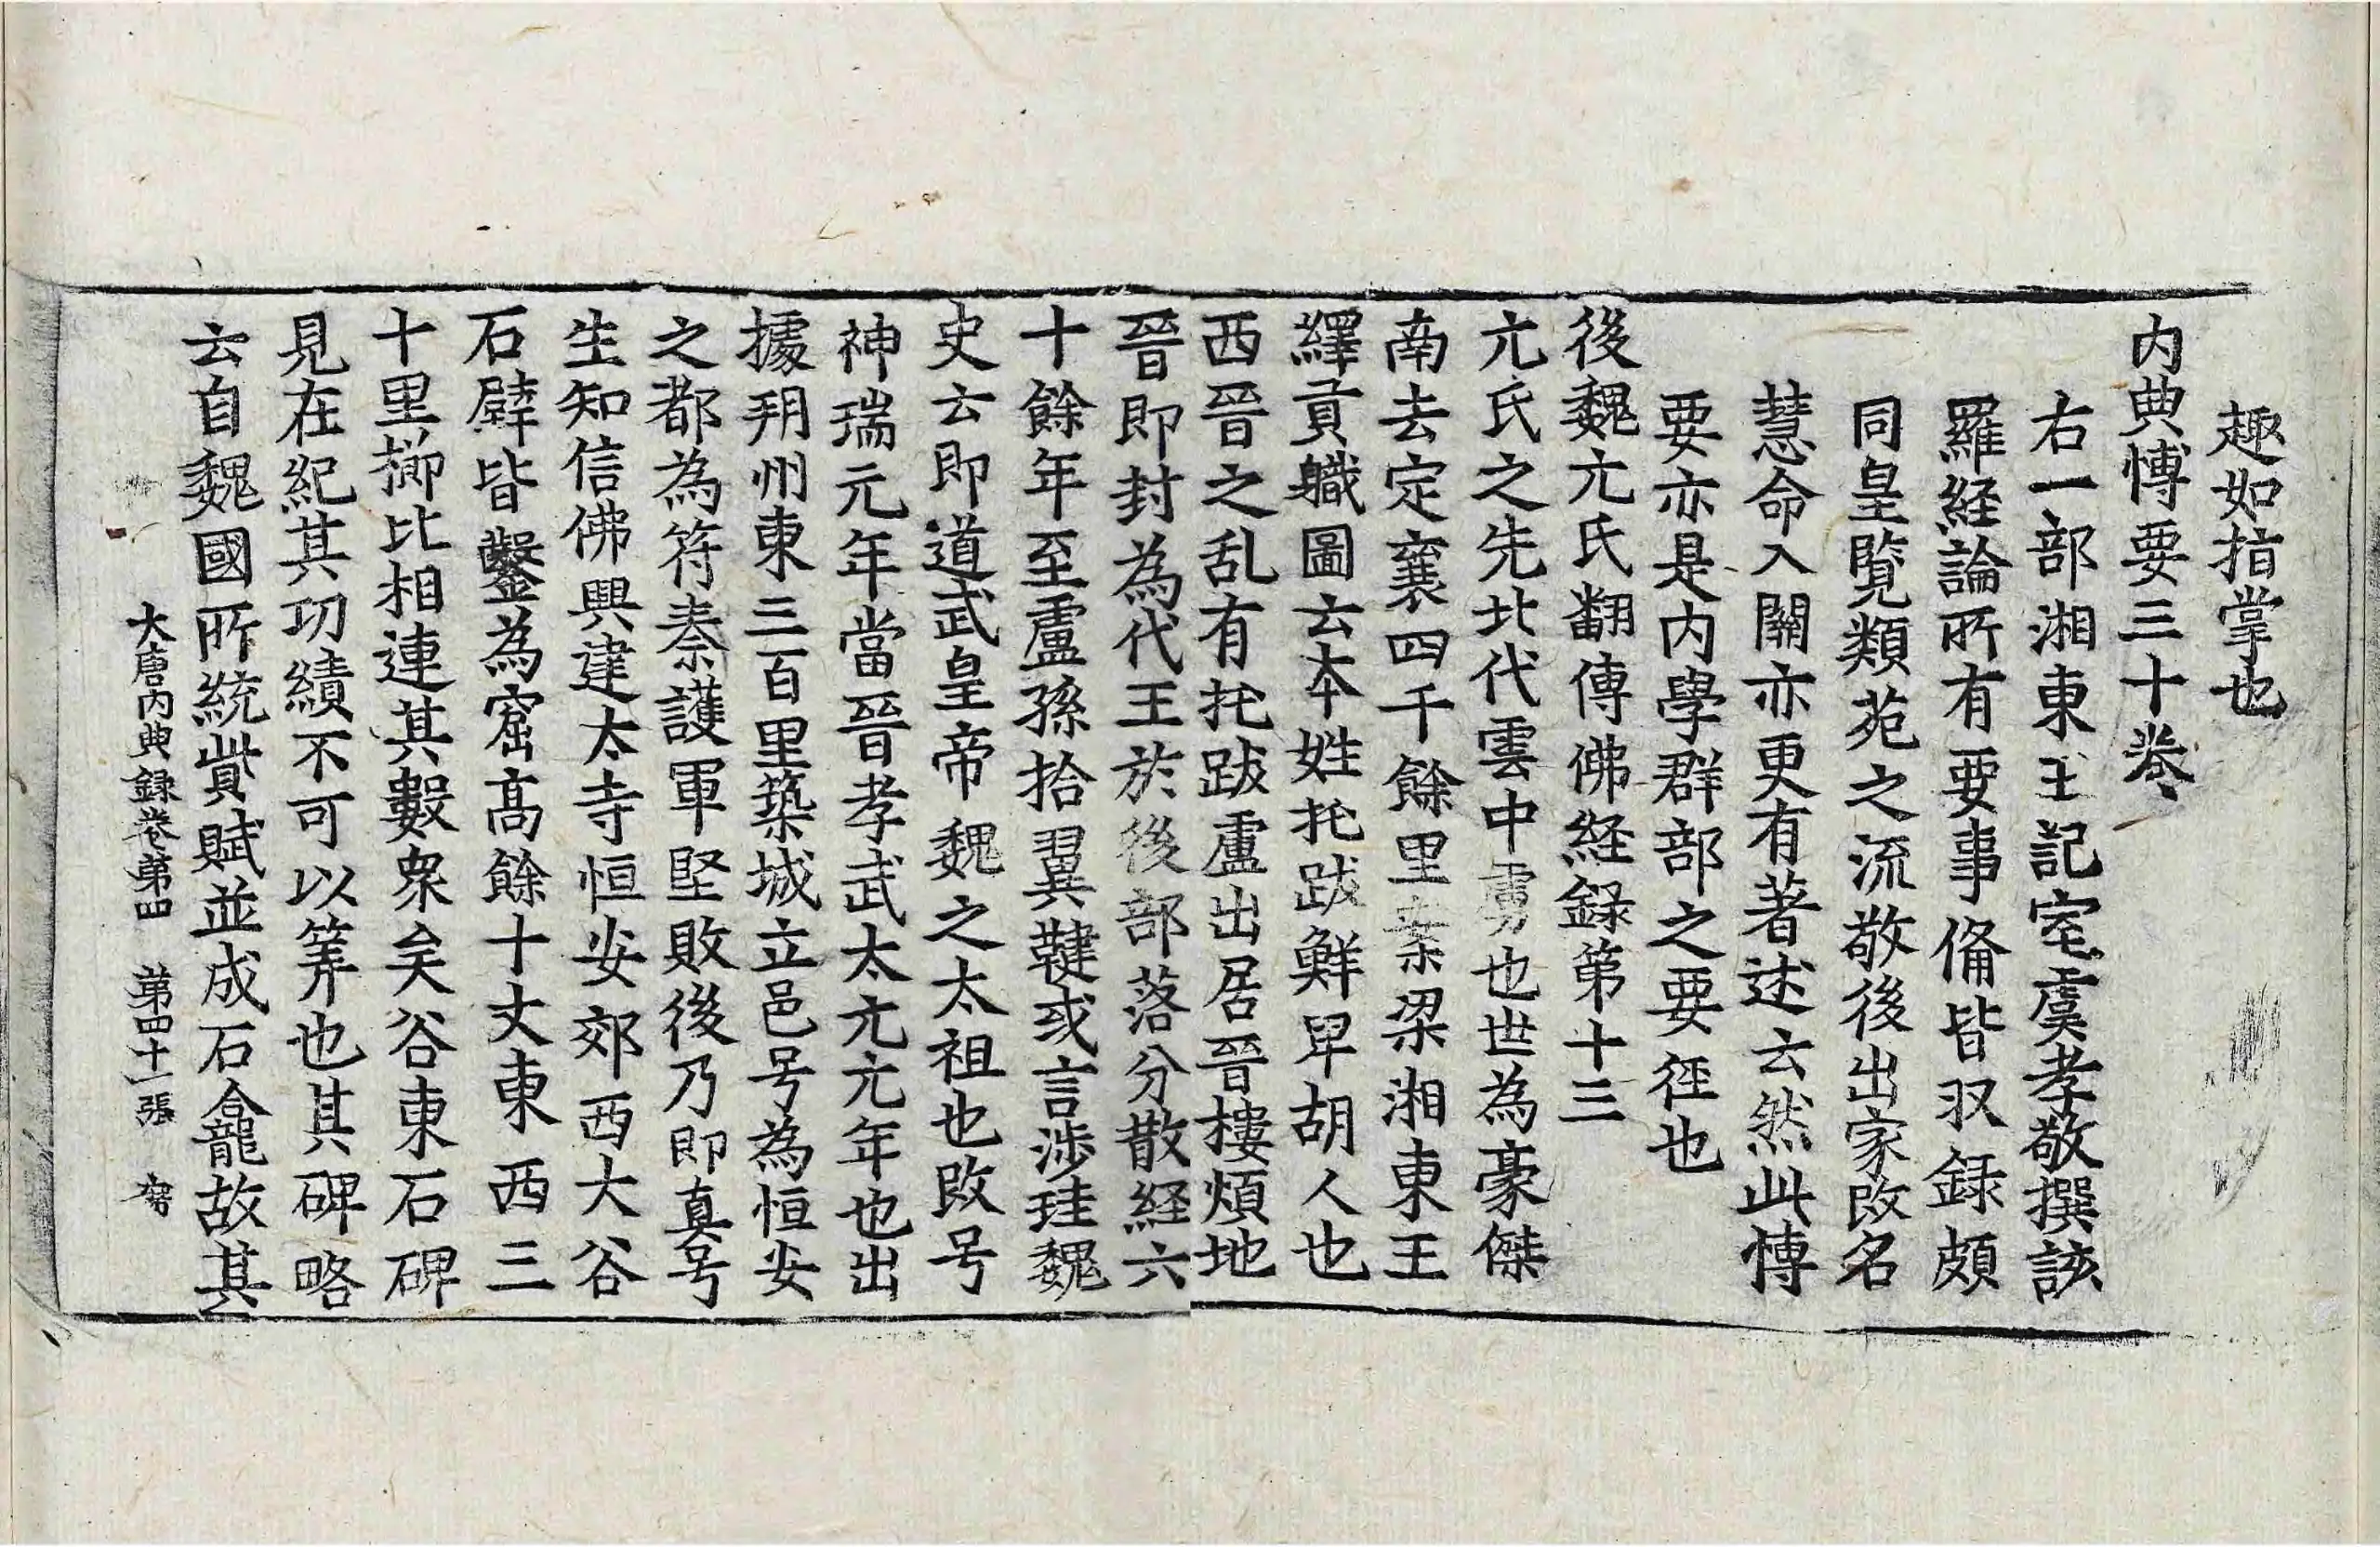 趣如指掌也
内典博要三十卷
右一部湘東王記室虞孝敬撰該
羅経論所有要事備皆収録頗
同皇覽類苑之流敬後出家改名
慧命入關亦更有著述云然此博
要亦是内學群部之要徑也
後魏元氏翻傳佛経録第十三
元氏之先北代雲中虜也世為豪傑
南去定襄四千餘里案梁湘東王
繹貢軄圖云本姓托跋鮮卑胡人也
西晉之乱有托跋盧出居晉樓煩地
晉即封為代王於後部落分散経六
十餘年至盧孫拾翼鞬或言涉珪魏
史云即道武皇帝魏之太祖也改号
神瑞元年當晉孝武太元元年也出
據朔州東三百里築城立邑号為恒安
之都為符秦護軍堅敗後乃即真号
生知信佛興建太寺恒安郊西大谷
石壁皆鑿為窟高餘十丈東西三
十里櫛比相連其數衆矣谷東石碑
見在紀其功績不可以筭也其碑略
云自魏國所統貲賦並成石龕故其
大唐内典録卷第四　第四十一張